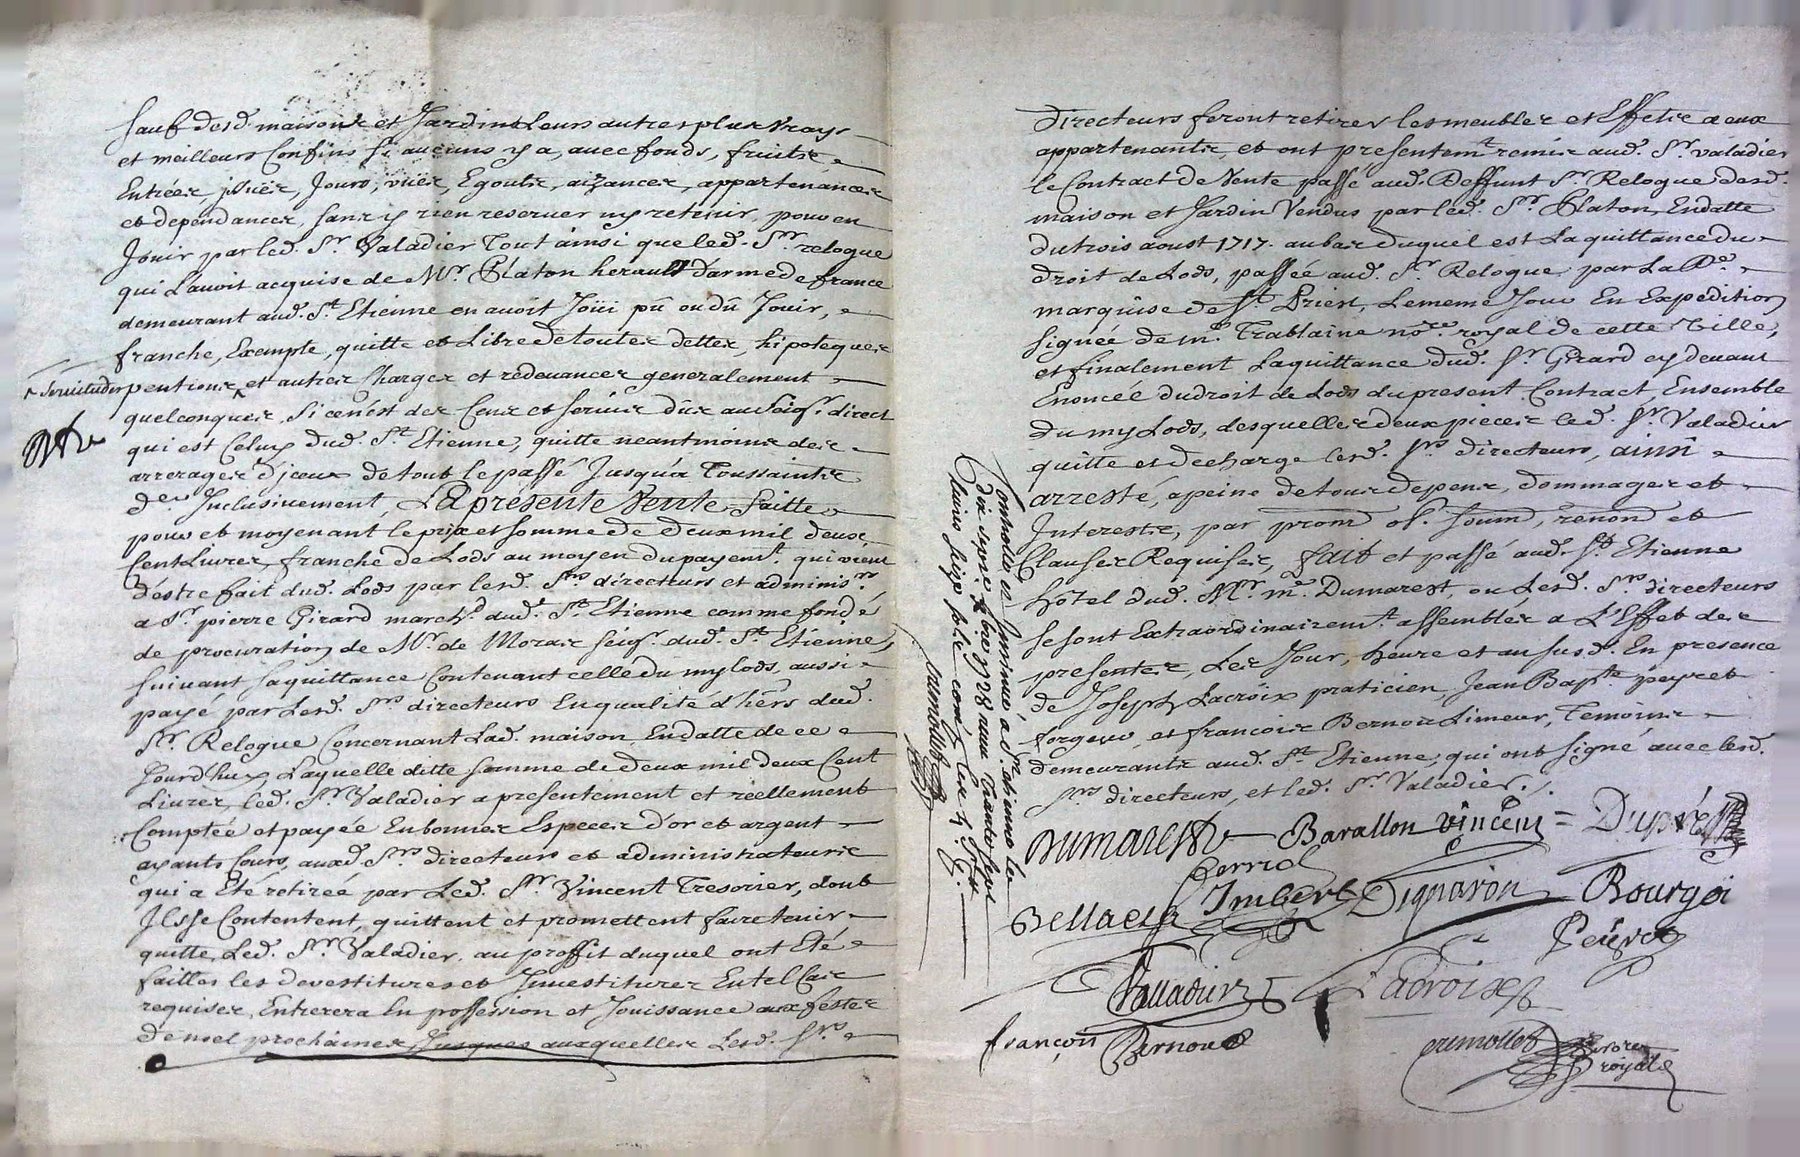 sauf desd. maisons et Jardins leurs autres plus vrays
et meilleurs Confins si aucuns y a, avec fonds, fruitz,
Entrées, jssuës, Jours, vuës, Egoutz, aizances, appartenances
et dependances, sans y rien reserver ny retenir, pour en
Jouir par led. Sr. Valadier Tout ainsi que led. Sr. relogue
qui L'avoit acquise de Mr. Platon herault d'arme de france
demeurant aud. St. Etienne en avoit Joüi pû ou dû Jouir,
franche, Exempte, quitte et Libre de toutes dettes, hipoteques
^ servitudes
pentions ^ et autres Charges et redevances generalement
quelconques, si ce n'est des Cens et servis dûs au Seigr. direct
qui est Celuy dud. St. Etienne, quitte neantmoins des
arrerages d'jceux de tout le passé Jusqu'a Toussaintz
der. Inclusivement, La présente Vente faitte
pour et moyenant le prix et somme de deux mil deux
Cent Livres, franche de Lods au moyen du payemt. qui vient
d'éstre fait dud. Lods par lesd. Srs. directeurs et adminisrs.
a Sr. pierre Girard marchd. aud. St. Etienne comme fondé
de procuration de Mr. de Moras seigr. dud. St. Etienne,
suivant sa quittance Contenant celle du my lods, aussi
payé par Lesd. Srs. directeurs En qualité d'hers. dud.
Sr. Relogue Concernant Lad. maison, En datte de ce
Jourd'huy, Laquelle ditte somme de deux mil deux Cent
Livres, led. Sr. Valadier a presentement et réellement
Comptée et payée En bonnes Especes d'or et argent
ayants Cours, auxd. Srs. directeurs et administrateurs
qui a Eté retirée par Led. Sr. Vincent Tresorier, dont
Ils se Contentent, quittent et promettent faire tenir
quitte Led. Sr. Valadier, au proffit duquel ont Eté
faittes les devestitures et Investitures En tel Cas
requises, Entrera En possession et Jouissance aux festes
de noel prochaines, Jusques auxquelles Lesd. Srs.
directeurs feront retirer les meubles et Effetz a eux
appartenants, et ont presentemt. remis aud. Sr. valadier
le Contract de Vente passé aud. Deffunt Sr. Relogue desd.
maison et Jardin Vendus par led. Sr. Platon, En datte
du trois aoust 1717. au bas duquel est La quittance du
droit de Lods, passée aud. Sr. Relogue, par La De.
marquise de St. Priest, Le meme Jour En Expedition
signée de me. Trablaine nore. royal de cette Ville,
et finalement La quittance dud. Sr. Girard cy devant
Enoncée du droit de Lods du present Contract, Ensemble
du my Lods, desquelles deux pieces led. Sr. Valadier
quitte et decharge lesd. Srs. directeurs, ainsi
arresté, a peine de tous depens, dommages et
Interestz, par prom. ob. soum. renon. et
Clauses Requises, fait et passé aud. St. Etienne
hôtel dud. Mr. me. Dumarest, ou Lesd. Srs. directeurs
se sont Extraordinairemt. assemblés a L'Effet des
presentes, Les Jour, heure et an susd. En presence
de Joseph Lacroix praticien, Jean Bapte. peyret
forgeur, et francois Bernou Limeur, Temoins
demeurants aud. St. Etienne, qui ont signé avec lesd.
Srs. directeurs, et led. Sr. Valadier.
Dumarest Barallon vincent Dupré
Perrin
Bellacla Imbert Dignaron Bourgoi
Peÿret
Valladier Lacroix
françois Bernou
grimollet
notre
royal
Controllé et Insinué a St. etienne le
dix sept 9bre 1728 reçu trante sept
livres seize sols
grimollet